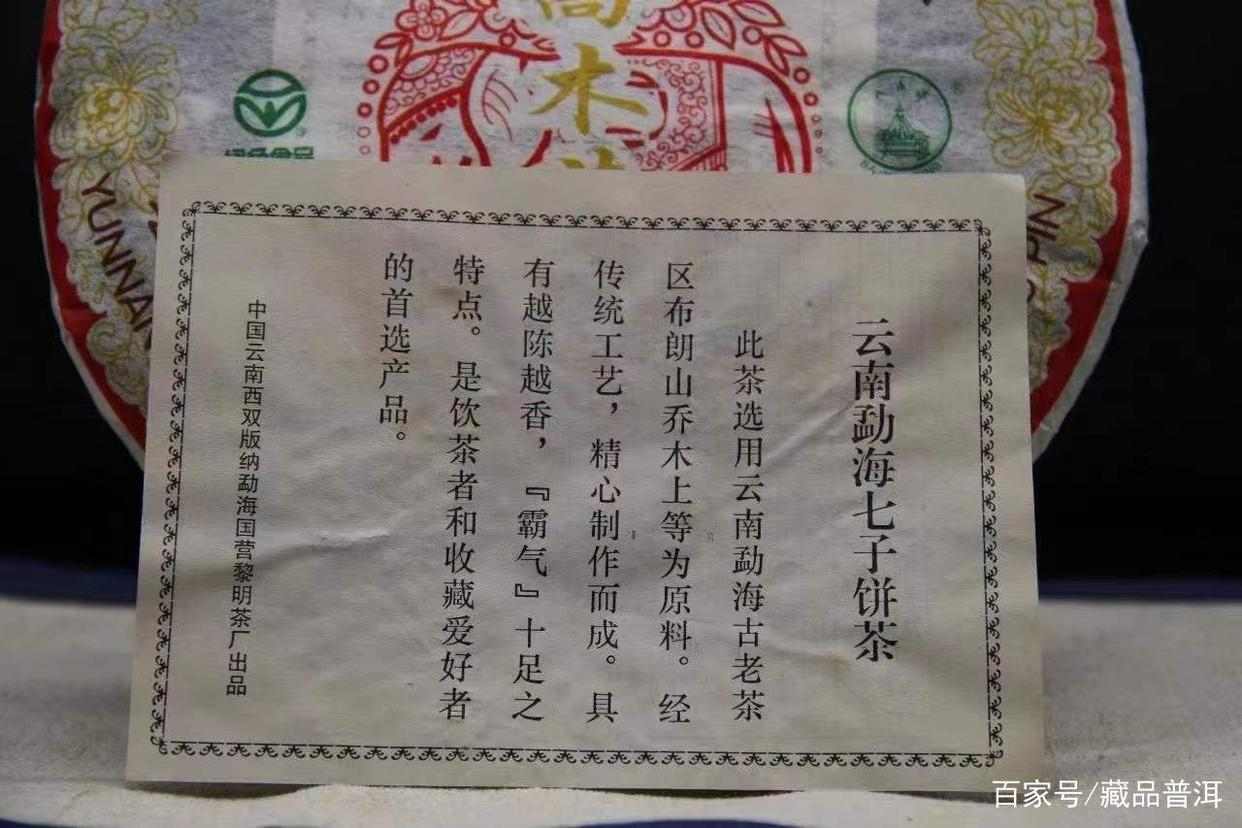 乔木
绿色食品
YUNNAN
云南勐海七子饼茶
此茶选用云南勐海古老茶
区布朗山乔木上等为原料。经
传统工艺，精心制作而成。具
有越陈越香，『霸气』十足之
特点。是饮茶者和收藏爱好者
的首选产品。
中国云南西双版纳勐海国营黎明茶厂出品
百家号/藏品普洱